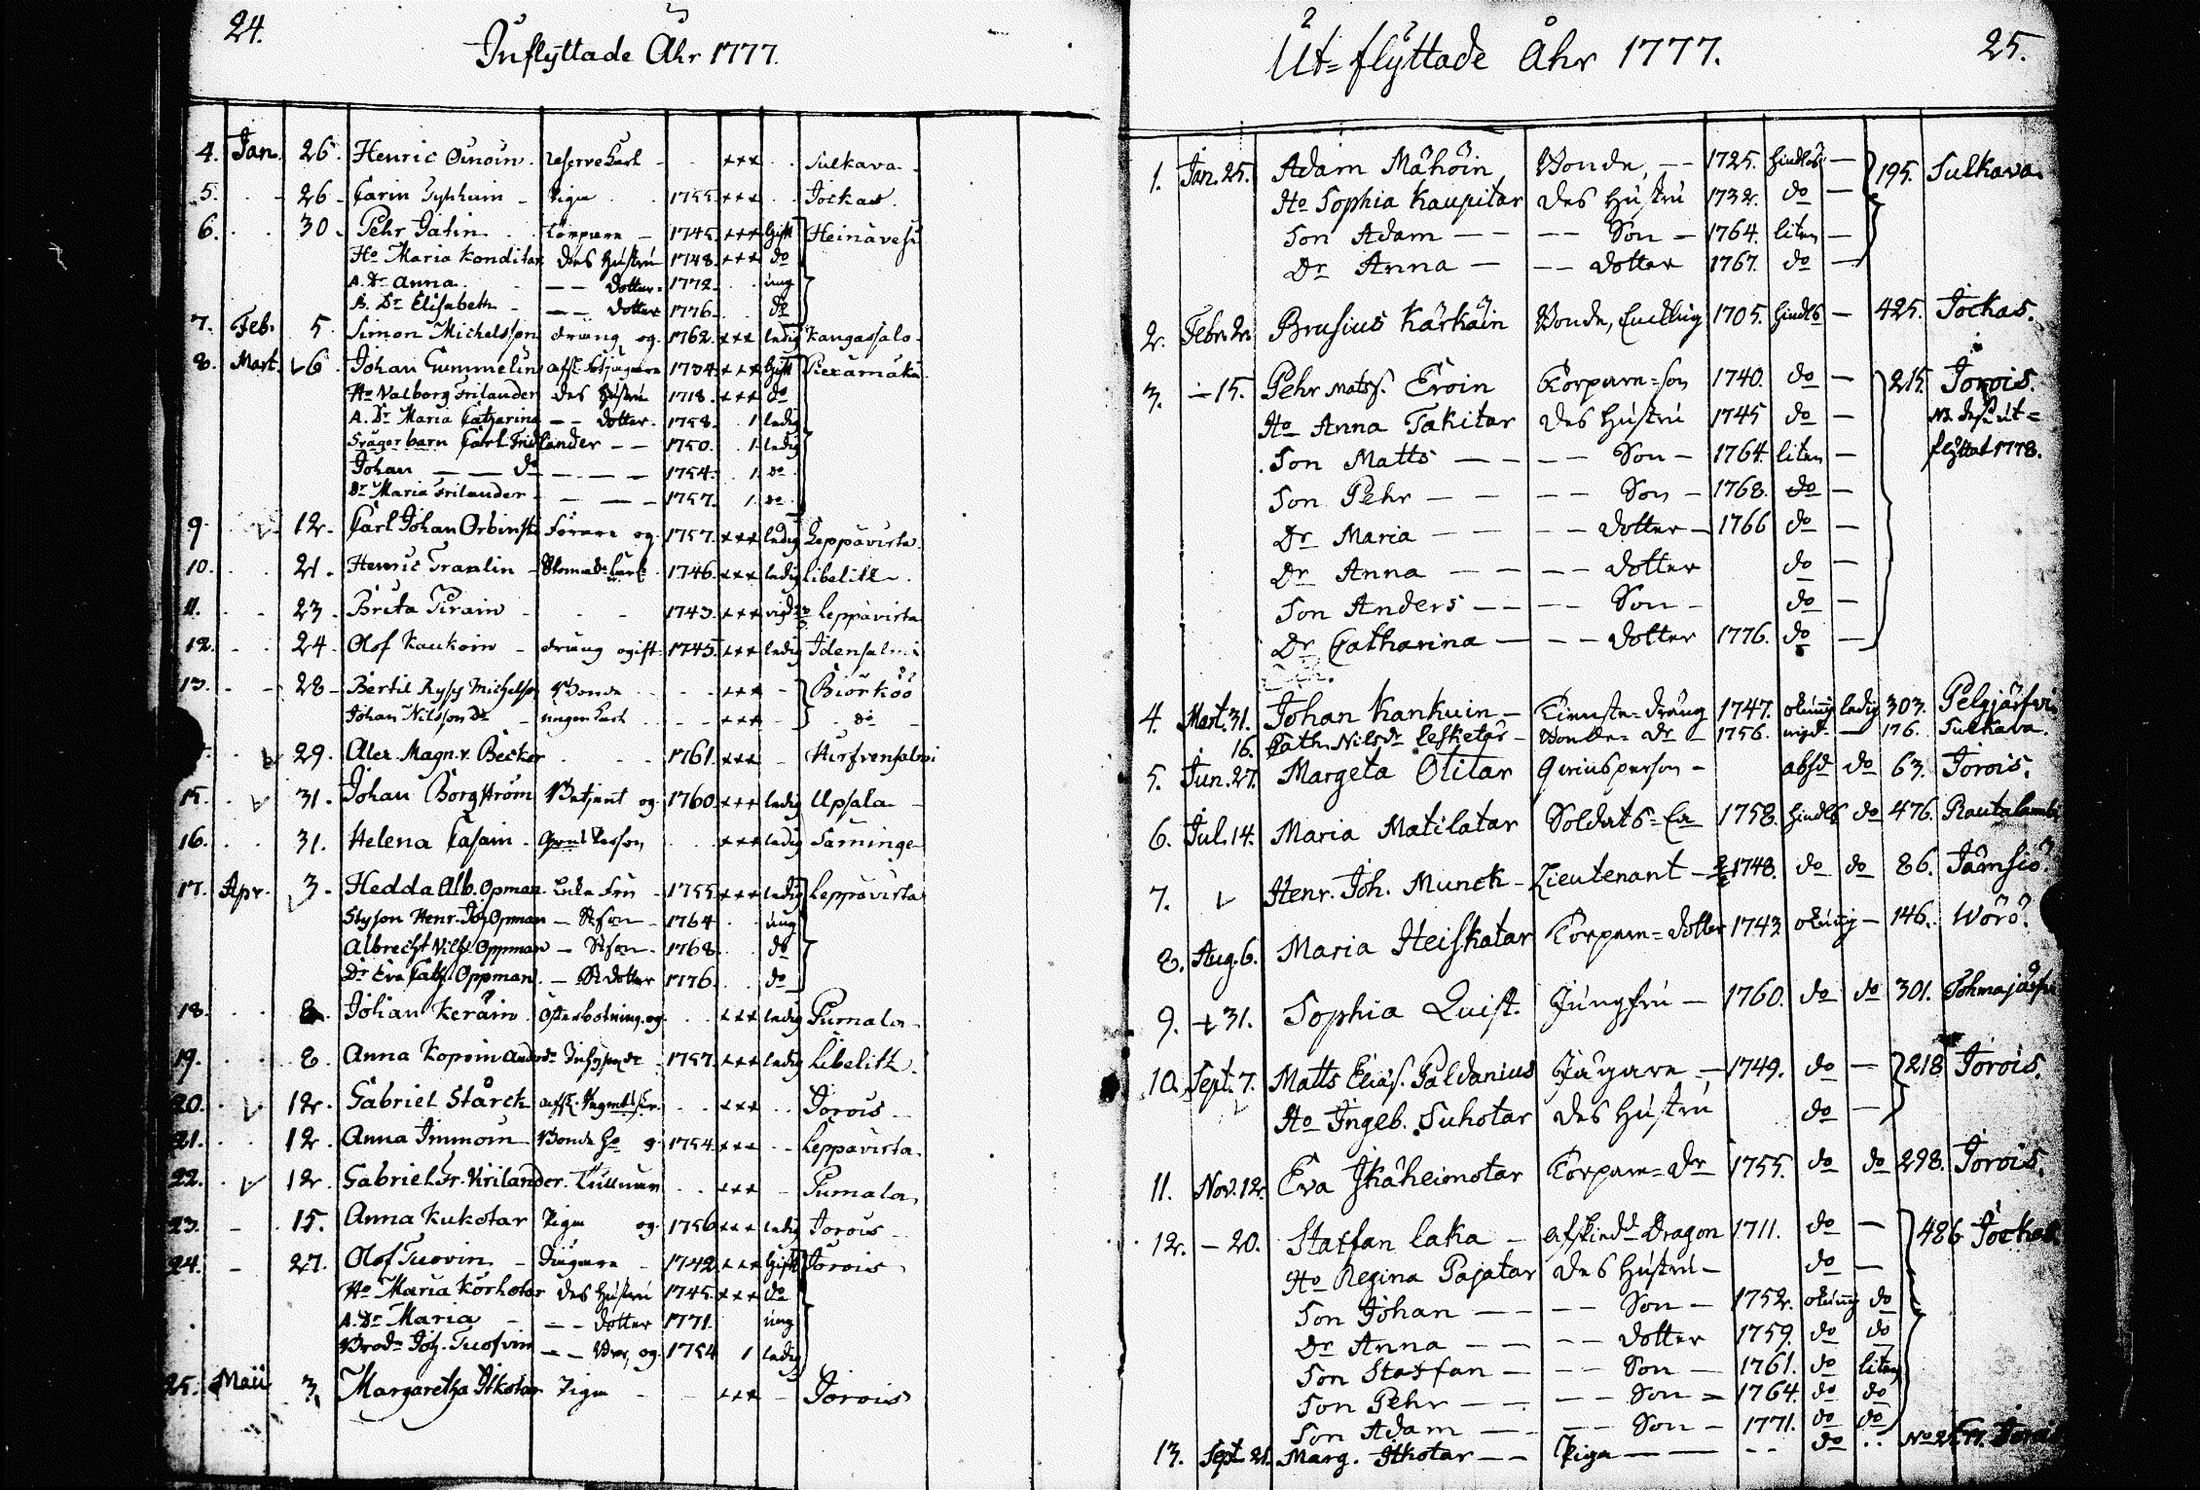 24.
Inflyttade Åhr 1777.
4. Jan. 26. Henric Oinoin reserve Karl - - +++ - Sulkava
5. - 26 Carin Piga 1755 +++ Jockas
6. - 30. Pehr Jatin Torpare - 1745. +++ Gift Heinävesi
Ho Maria Konditar des Hustru 1748. +++ do
A. Dr Anna - - dotter 1772. ung
B. Dr Elisabeth - - dotter 1776. do
7. Feb. 5. Simon Michelsson dräng og. 1762. +++ ledig Kangassalo
8. Mart. 6. Johan Gummelin 1734 +++ Gift Piexämäki
Ho Valborg Frilander des Hustru 1718. +++ do
A. Dr Maria Catharina - - dotter. 1758. 1 ledig
Svågerbarn Carl Frilander - - 1750. 1. ledig
Johan - - do - - - 1754. 1. do
Dr Maria Frilander - - - 1757. 1. do
9. 12. Carl Johan Förare og. 1757. +++ ledig Leppävirta
10. 21. Henric 1746. +++ ledig Libelitz
11. 23. Brita Pirain - - 1743. +++ Leppävirta
12. 24. Olof Kaukoin dräng ogift 1745. +++ ledig Idensalmi
13. 28. Bertil Ryss Michelson Bonde - - +++ - Biörköö
Johan Nilsson do ungen Karl - - +++ - do
29. Alex. Magn. v. Becker - - 1761. +++ -
15. 31. Johan Borgström Betjent og. 1760. +++ ledig Upsala
16. 31. Helena Casain +++ ledig Säminge
17. Apr. 3. Hedda Alb. Opman Enke Fru 1755 +++ ledig Leppävirta
Styfson Henr. Joh. Opman - Stson - 1764 ung
Albrecht Wilh. Oppman - Stson - 1768. do
Dr Eva Cath. Oppman - St dotter 1776. do
18. 8. Johan Keräin Österbotning og. +++ ledig Pumala
19. 8. Anna Kopoin 1757. +++ ledig Libelitz
20. 12. Gabriel Stårck +++ Jorois
21. 12. Anna Immoin Bonde 1754 +++ - Leppävirta
22. 12. Gabriel Fr. Kirilander. +++ - Pumala
23. - 15. Anna Kukotar Piga og. 1756 +++ ledig Jorois
24. - 27. Olof Tuovin Jngare - 1742 +++ Gift Jorois
Ho Maria Korhotar des Hustru 1745. +++ do
A. Dr Maria - - dotter 1771. ung
Brod. Joh. Tuofvin - - Bror, og. 1754 1 ledig
25. Maii 3. Margaretha Itkotar Piga - - +++ - Jorois
2
Ut=flyttade Åhr 1777. 25.
1. Jan. 25. Adam Mähöin Bonde, - - 1725. - 195. Sulkava
Ho Sophia Kaupitar des Hustru 1732. do -
Son Adam - - - - Son - 1764. liten -
Dr Anna - - - dotter 1767. do -
2. Febr. 2. Brusius Kärkäin Bonde, Enckling 1705. - 425. Jockas.
3. - 15. Pehr Matss. Eroin Torpare=son 1740. do - 215. Jorois.
Ho Anna Takitar des Hustru 1745 do - NB. dess ut=
Son Matts - - - - Son - 1764. liten - flyttat 1778.
Son Pehr - - - - Son - 1768. do -
Dr Maria - - - - dotter - 1766 do -
Dr Anna - - - - dotter do -
Son Anders - - - - Son - do -
Dr Catharina - - - dotter 1776. do -
4. Mart. 31. Johan Kankuin - Tienste=dräng 1747. okunnig ledig 303. Pelgjärfvi
16. Cath. Nilsdr Lesketar - Bonde=Dr - 1756. - 176. Sulkava.
5. Jun. 27. Margeta Otitar Qvinsperson - absd do 63. Jorois.
6. Jul. 14. Maria Matilatar Soldats=Ea 1758. do 476. Rautalambi
7. Henr. Joh. Munck - Lieutenant - 1748. do do 86. Jämsiö
8. Aug. 6. Maria Heiskatar Torpare=dotter 1743 okunnig - 146. Wörö.
9. + 31. Sophia Quist. Jungfru - 1760. do do 301. Tohmajärfvi
10. Sept. 7. Matts Elias. Paldanius Jägare - 1749. do - 218 Jorois.
Ho Ingeb. Suhotar des Hustru do -
11. Nov. 12. Eva Ikäheimotar Torpare=Dr 1755. do do 298. Jorois.
12. - 20. Staffan Laka - afskedd Dragon 1711. do - 486 Jockas
Ho Regina Pajatar des Hustru - do -
Son Johan - - - - Son - 1752. okunnig do
Dr Anna - - - dotter 1759. do do
Son Staffan - - - Son - 1761. do liten
Son Pehr - - - - Son - 1764. do do
Son Adam - - - - Son - 1771. do do
13. Sept 21. Marg. Itkotar - - Piga - - - - do Jorois